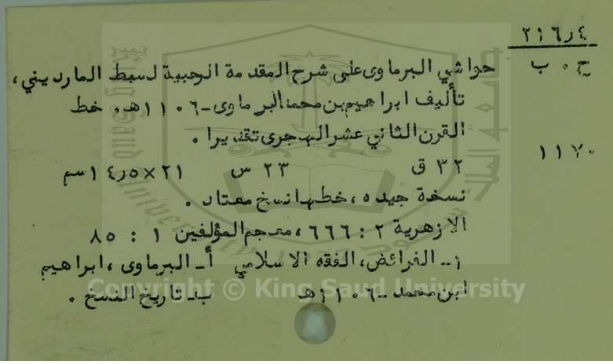 ٢١٦٫٤
ح٠ب حواشي البرماوى على شرح المقدمة الرحبية لسبط المارديني،
تأليف ابراهيم بن محمد البرماوى ـ ١١٠٦هـ. خط
القرن الثاني عشر الهجرى تقديرا.
١١٧٠
٣٢ ق ٢٣ س ٢١×١٤٫٥سم
نسخة جيده، خطها نسخ معتاد.
الازهرية ٢: ٦٦٦، معجم المؤلفين ١: ٨٥
١ـ الفرائض، الفقه الاسلامي أـ البرماوى، ابراهيم
ابن محمد ـ ١١٠٦هـ بـ تاريخ النسخ.
Copyright © King Saud University